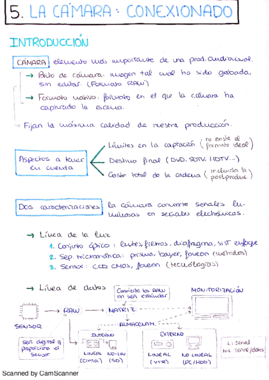 5. LA CÁMARA: CONEXIONADO
INTRODUCCIÓN
CÁMARA elemento más importante de una prod. audiovisual.
→ Bruto de cámara: imagen tal cual ha sido grabada,
sin editar (Formato RAW)
→ Formato nativo: formato en el que la cámara ha
capturado la escena.
→ Fijan la máxima calidad de nuestra producción.
Aspectos a tener en cuenta
Límites en la captación (no existe el formato ideal)
Destino final (DVD, SDTV, HDTV...)
Coste total de la cadena (incluida la postproduc.)
Dos características la cámara convierte señales lu-
minosas en señales electrónicas.
→ Línea de la luz
1. Conjunto óptico: lentes, filtros, diafragma, dist enfoque
2. Sep. micromántica: prisma, bayer, foveon (métodos)
3. Sensor: CCD CMOS, foveon (tecnología)
→ Línea de datos
Cuando los RAW no son estándar
MONITORIZACIÓN
RAW → MATRIZ
SENSOR
ALMACENAM.
Señ. digital y
INTERNO
LINEAL
NO LIN
EXTERNO
LINEAL (VTR)
NO LINEAL (PC/HDD)
L: señal
Scanned by CamScanner